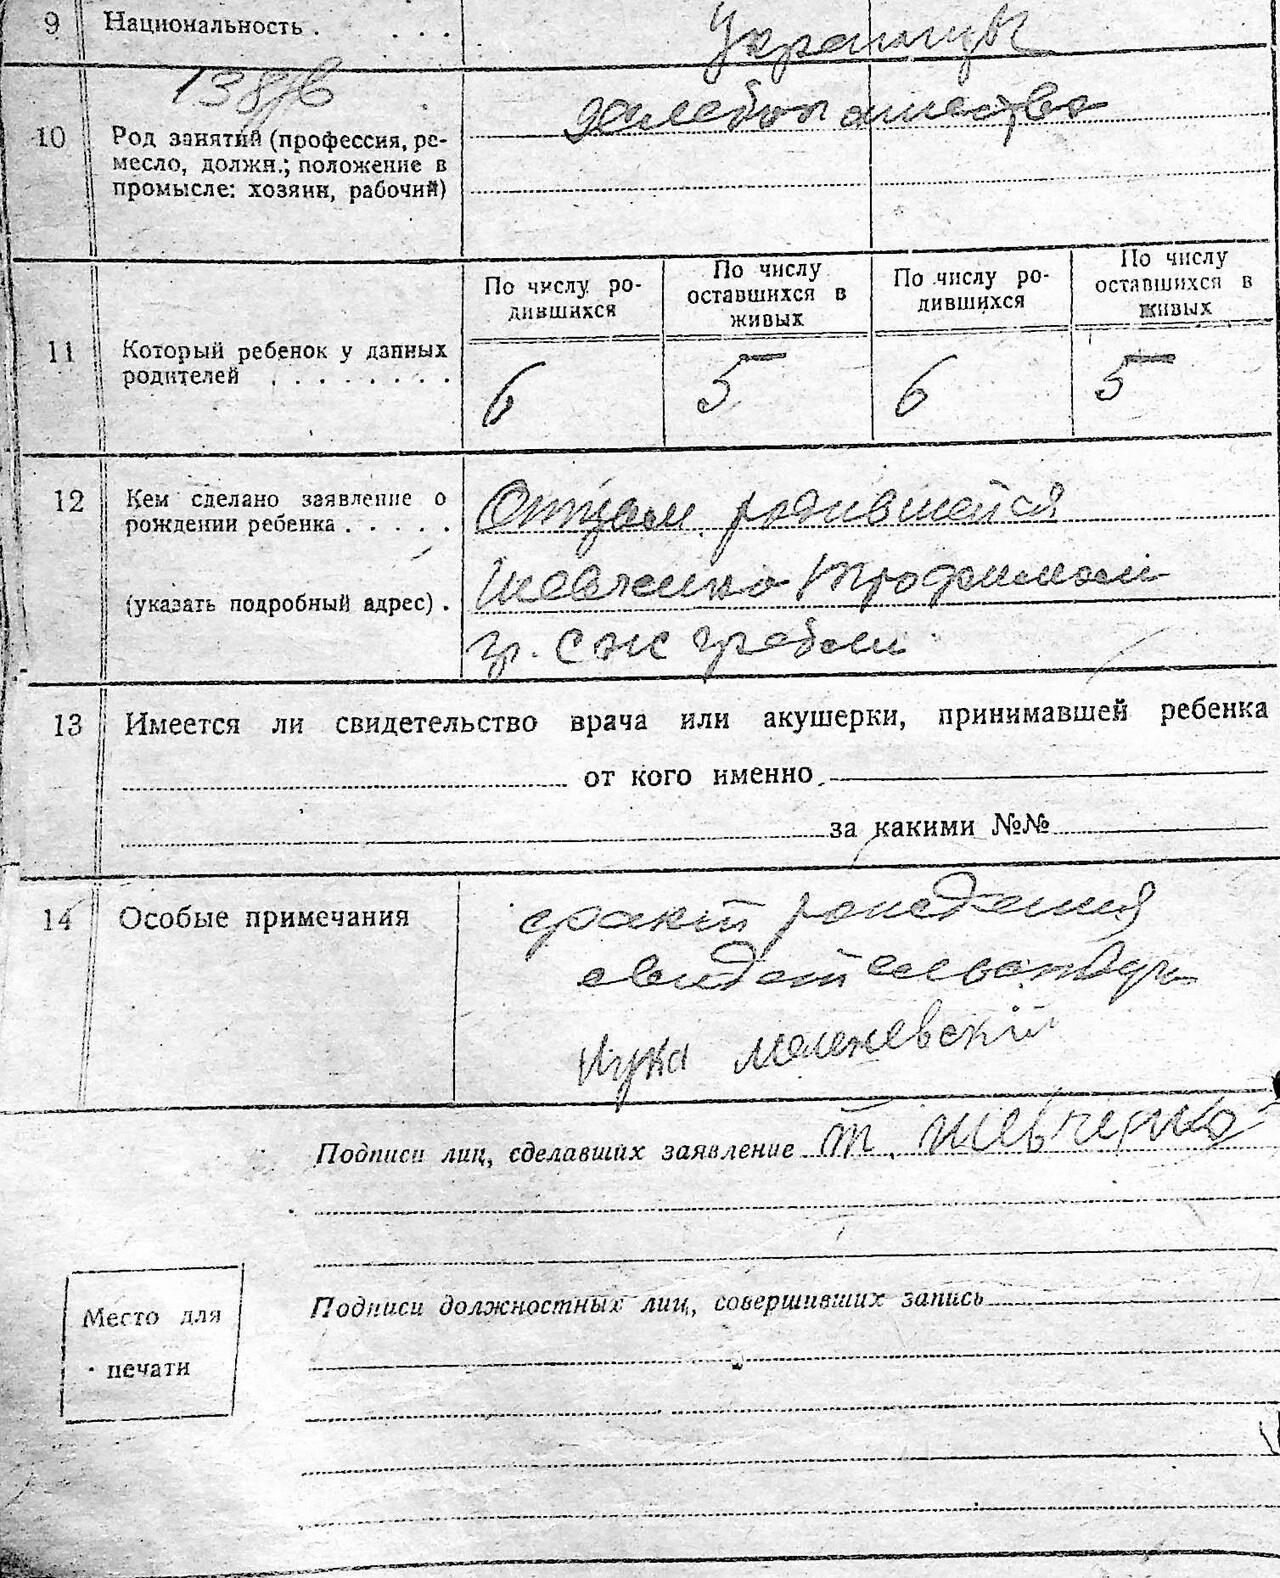 9 Национальность . . . . Украинцы
138/6
10 Род занятий (профессия, ре-
месло, должн.; положение в
промысле: хозяин, рабочий)
хлебопашество
11 Который ребенок у данных
родителей . . . . . . . .
По числу ро-
дившихся
По числу
оставшихся в
живых
По числу ро-
дившихся
По числу
оставшихся в
живых
6 5 6 5
12 Кем сделано заявление о
рождении ребенка . . . . .
(указать подробный адрес) .
Отцом родившейся
Шевченко Трофимом
гр.
13 Имеется ли свидетельство врача или акушерки, принимавшей ребенка
от кого именно
за какими №№
14 Особые примечания
факт рождения
Лука
Подписи лиц, сделавших заявление Т. Шевченко
Место для
печати
Подписи должностных лиц, совершивших запись